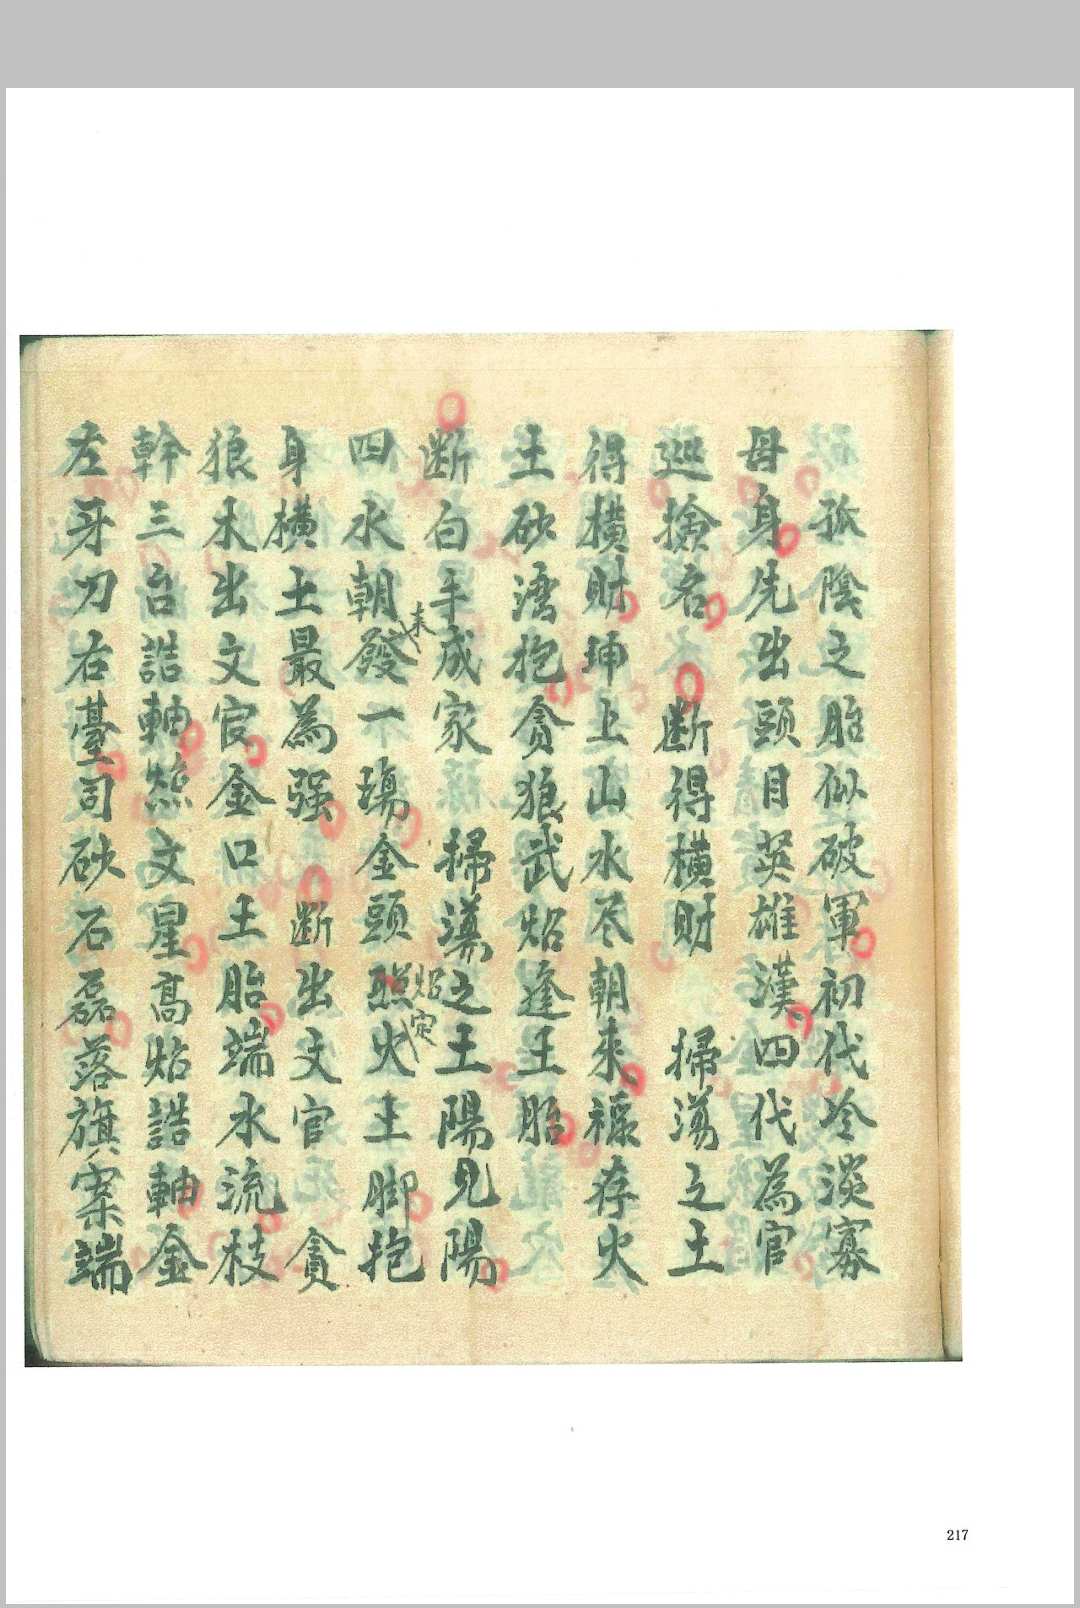 孤陰之胎似破軍初代冷淡寡
母身先出頭目英雄漢四代為官
巡撿名 断得橫財 掃蕩之土
得橫財珅上山水尽朝来祿存火
土砂湾抱貪狼武炤逢土胎
断白手成家 掃蕩之土陽見陽
四水朝發来一塲金頭照炤定火土脚抱
身橫土最為强 断出文官 貪
狼木出文官金口土胎端水流枝
幹三台誥軸㷖文星髙炤誥軸金
左牙刀右臺司砂石磊落旗案端
217